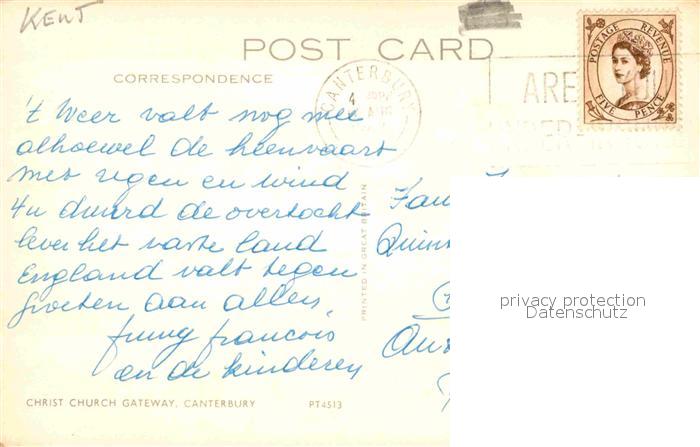 KENT
POST CARD
CORRESPONDENCE
CANTERBURY
4
POSTAGE REVENUE
FIVE PENCE
ARE
't Weer valt nog mee
alhoewel de heenvaart
met regen en wind
4u duurd de overtocht
liever het vaste land
England valt tegen
groeten aan allen,
francois
en de kinderen
PRINTED IN GREAT BRITAIN
privacy protection
Datenschutz
CHRIST CHURCH GATEWAY, CANTERBURY PT4513